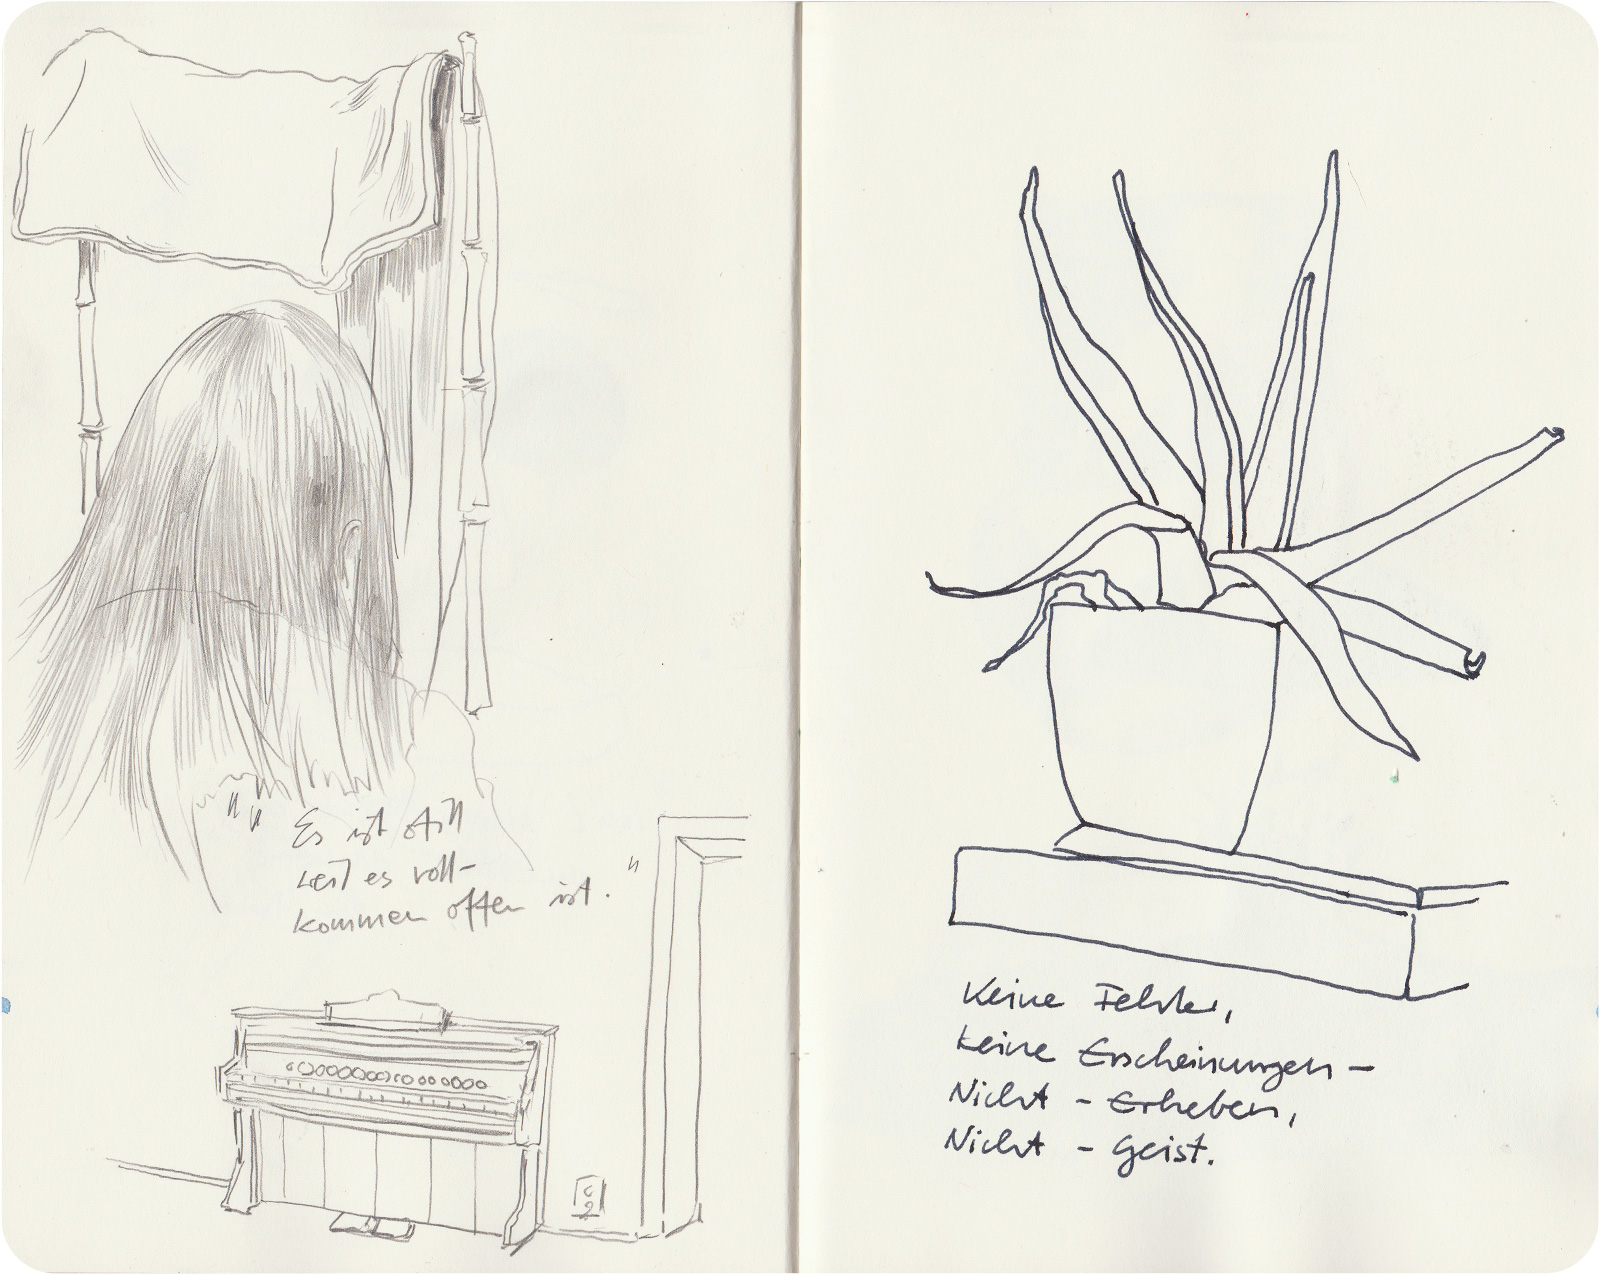 "Es ist still
weil es voll-
kommen offen ist."
Keine Fehler,
keine Erscheinungen –
Nicht - Erheben,
Nicht - Geist.